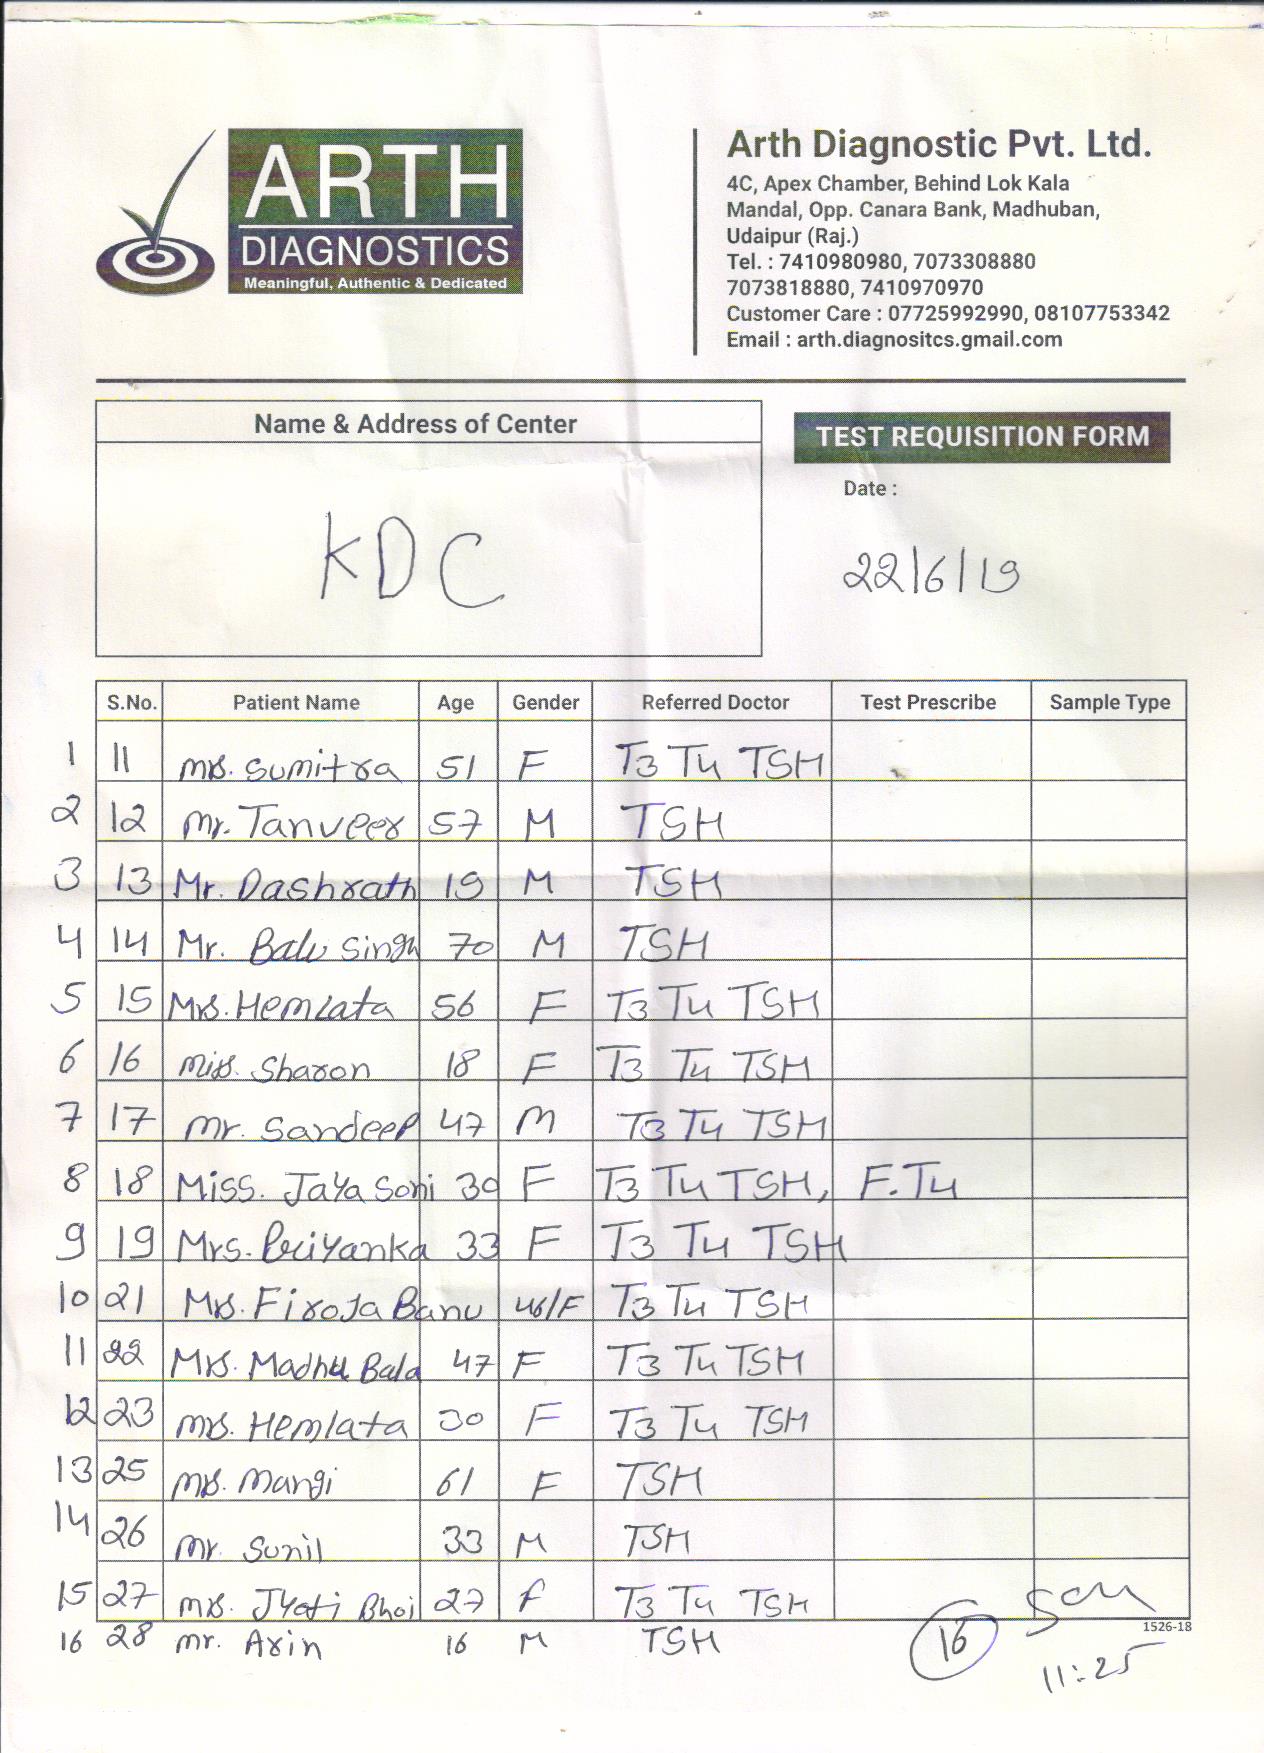 ARTH
DIAGNOSTICS
Meaningful, Authentic & Dedicated
Arth Diagnostic Pvt. Ltd.
4C, Apex Chamber, Behind Lok Kala
Mandal, Opp. Canara Bank, Madhuban,
Udaipur (Raj.)
Tel. : 7410980980, 7073308880
7073818880, 7410970970
Customer Care : 07725992990, 08107753342
Email : arth.diagnositcs.gmail.com
Name & Address of Center
KDC
TEST REQUISITION FORM
Date :
22/6/19
S.No. Patient Name Age Gender Referred Doctor Test Prescribe Sample Type
1 11 Mrs. Sumitra 51 F T3 T4 TSH
2 12 Mr. Tanveer 57 M TSH
3 13 Mr. Dashrath 19 M TSH
4 14 Mr. Balu Singh 70 M TSH
5 15 Mrs. Hemlata 56 F T3 T4 TSH
6 16 Miss. Sharon 18 F T3 T4 TSH
7 17 Mr. Sandeep 47 M T3 T4 TSH
8 18 Miss. Jaya Soni 30 F T3 T4 TSH, F.T4
9 19 Mrs. Priyanka 33 F T3 T4 TSH
10 21 Mrs. Firoja Banu 46/F T3 T4 TSH
11 22 Mrs. Madhu Bala 47 F T3 T4 TSH
12 23 Mrs. Hemlata 30 F T3 T4 TSH
13 25 Mrs. Mangi 61 F TSH
14 26 Mr. Sunil 33 M TSH
15 27 Mrs. Jyoti Bhoi 27 F T3 T4 TSH
16 28 Mr. Arin 16 M TSH
16
1526-18
11:25